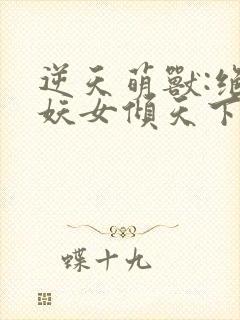 逆天萌獸:絕
妖女傾天下
蝶十九